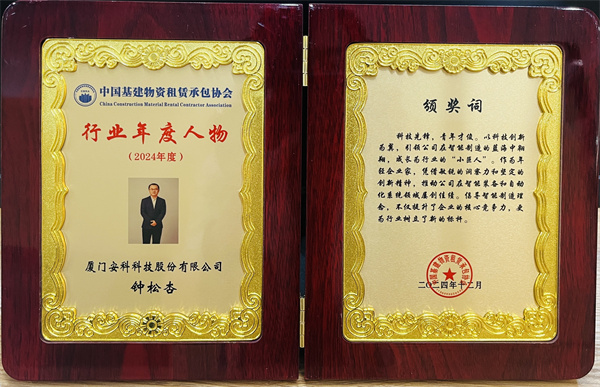 中国基建物资租赁承包协会
China Construction Material Rental Contractor Association
行业年度人物
(2024年度)
厦门安科科技股份有限公司
钟松杏
颁奖词
科技先锋，青年才俊。以科技创新
为翼，引领公司在智能制造的蓝海中翱
翔，成长为行业的“小巨人”。作为年
轻企业家，凭借敏锐的洞察力和坚定的
创新精神，推动公司在智能装备和自动
化系统领域屡创佳绩。倡导智能制造理
念，不仅提升了企业的核心竞争力，更
为行业树立了新的标杆。
中国基建物资租赁承包协会
二〇二四年十二月